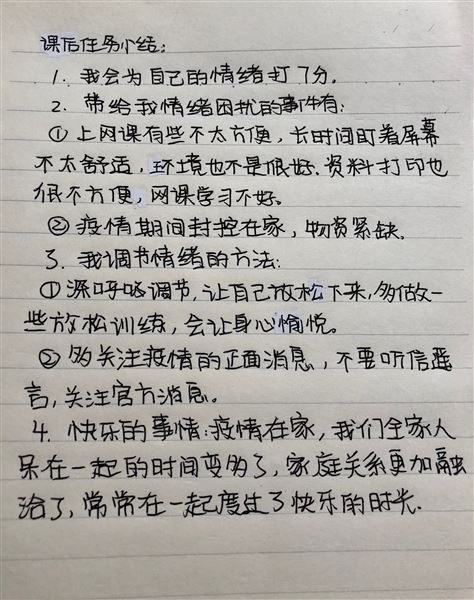 课后任务小结:
1. 我会为自己的情绪打7分.
2. 带给我情绪困扰的事件有:
①上网课有些不太方便, 长时间盯着屏幕
不太舒适, 环境也不是很好. 资料打印也
很不方便, 网课学习不好.
②疫情期间封控在家, 物资紧缺.
3. 我调节情绪的方法:
①深呼吸调节, 让自己放松下来, 多做一
些放松训练, 会让身心愉悦。
②多关注疫情的正面消息, 不要听信谣
言, 关注官方消息。
4. 快乐的事情:疫情在家, 我们全家人
呆在一起的时间变多了, 家庭关系更加融
洽了, 常常在一起度过了快乐的时光.